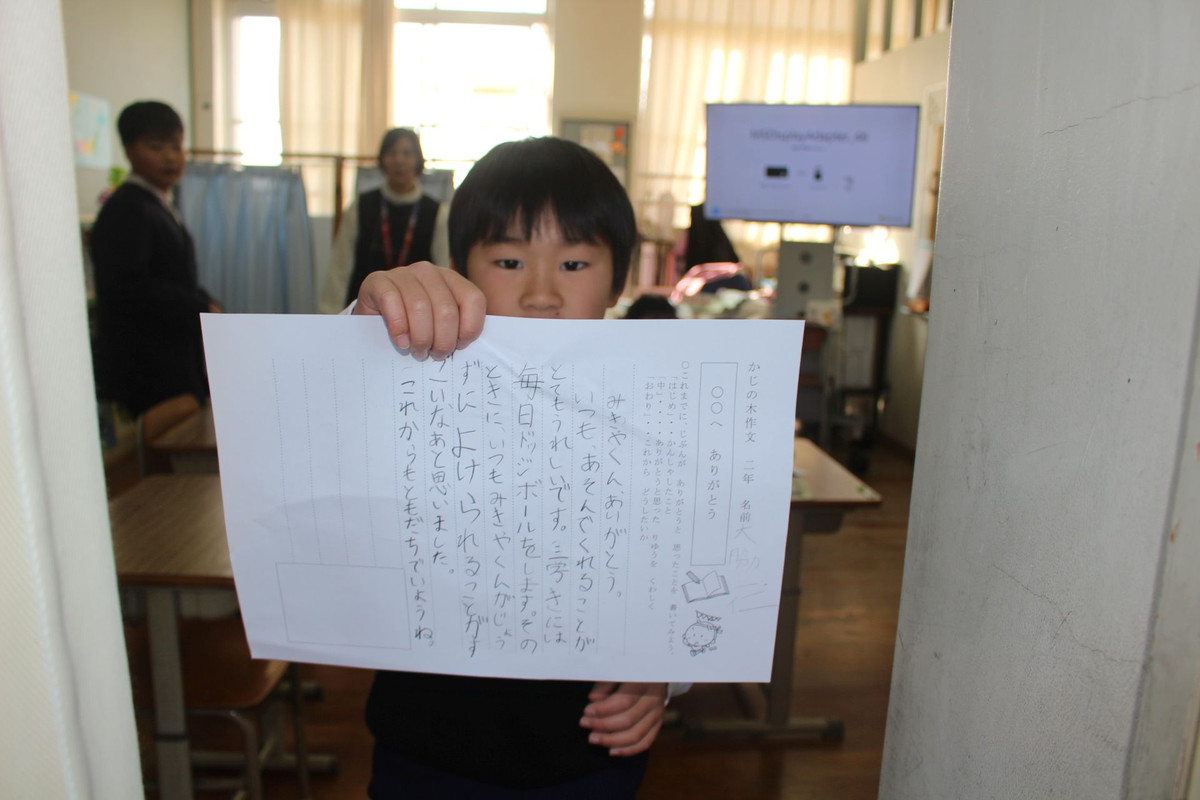 かじの木作文　二年　名前
○○へ　ありがとう
○これまでに、じぶんが　ありがとうと　思ったことを　書いてみよう。
「はじめ」・・・かんしゃしたこと
「中」・・・・ありがとうと思った　りゆうを　くわしく
「おわり」・・・これから　どうしたいか
みきやくん、ありがとう。
いつも、あそんでくれることが
とてもうれしいです。三字きには
毎日ドッジボールをします。その
ときに、いつもみきやくんがじょう
ずに、よけられることがす
ごいなあと思いました。
これからもともだちでいようね。